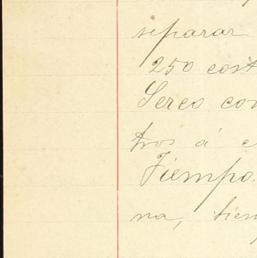 separar
250 cost
Serco con
tros á e
Tiempo.
na, tiem